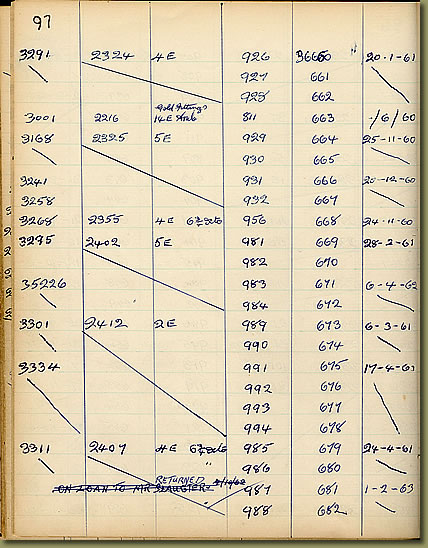 97
3291 2324 4E 926 36660 20-1-61
927 661
928 662
Gold Fittings
3001 2216 14E 811 663 -/6/60
3168 2325 5E 929 664 25-11-60
930 665
3241 931 666 20-12-60
3258 932 667
3268 2355 4E 956 668 24-11-60
3295 2402 5E 981 669 28-2-61
982 670
35226 983 671 6-4-62
984 672
3301 2412 2E 989 673 6-3-61
990 674
3334 991 675
992 676
993 677
994 678
3311 2407 4E 985 679 24-4-61
" 986 680
RETURNED
ON LOAN TO MR 987 681 1-2-63
988 682